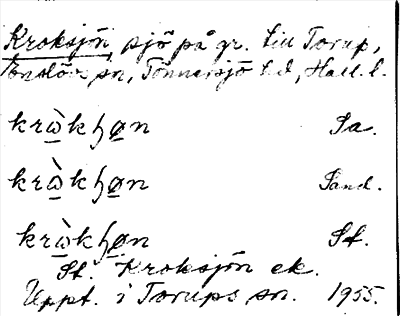 Kroksjön, sjö på gr. till Torup,
Enslövs sn, Tönnersjö hd, Hall. l.
krὼkꜧøn Sa.
krὼkꜧøn Sand.
krὼkꜧøn St.
St. Kroksjön ek.
Uppt. i Torups sn. 1955.